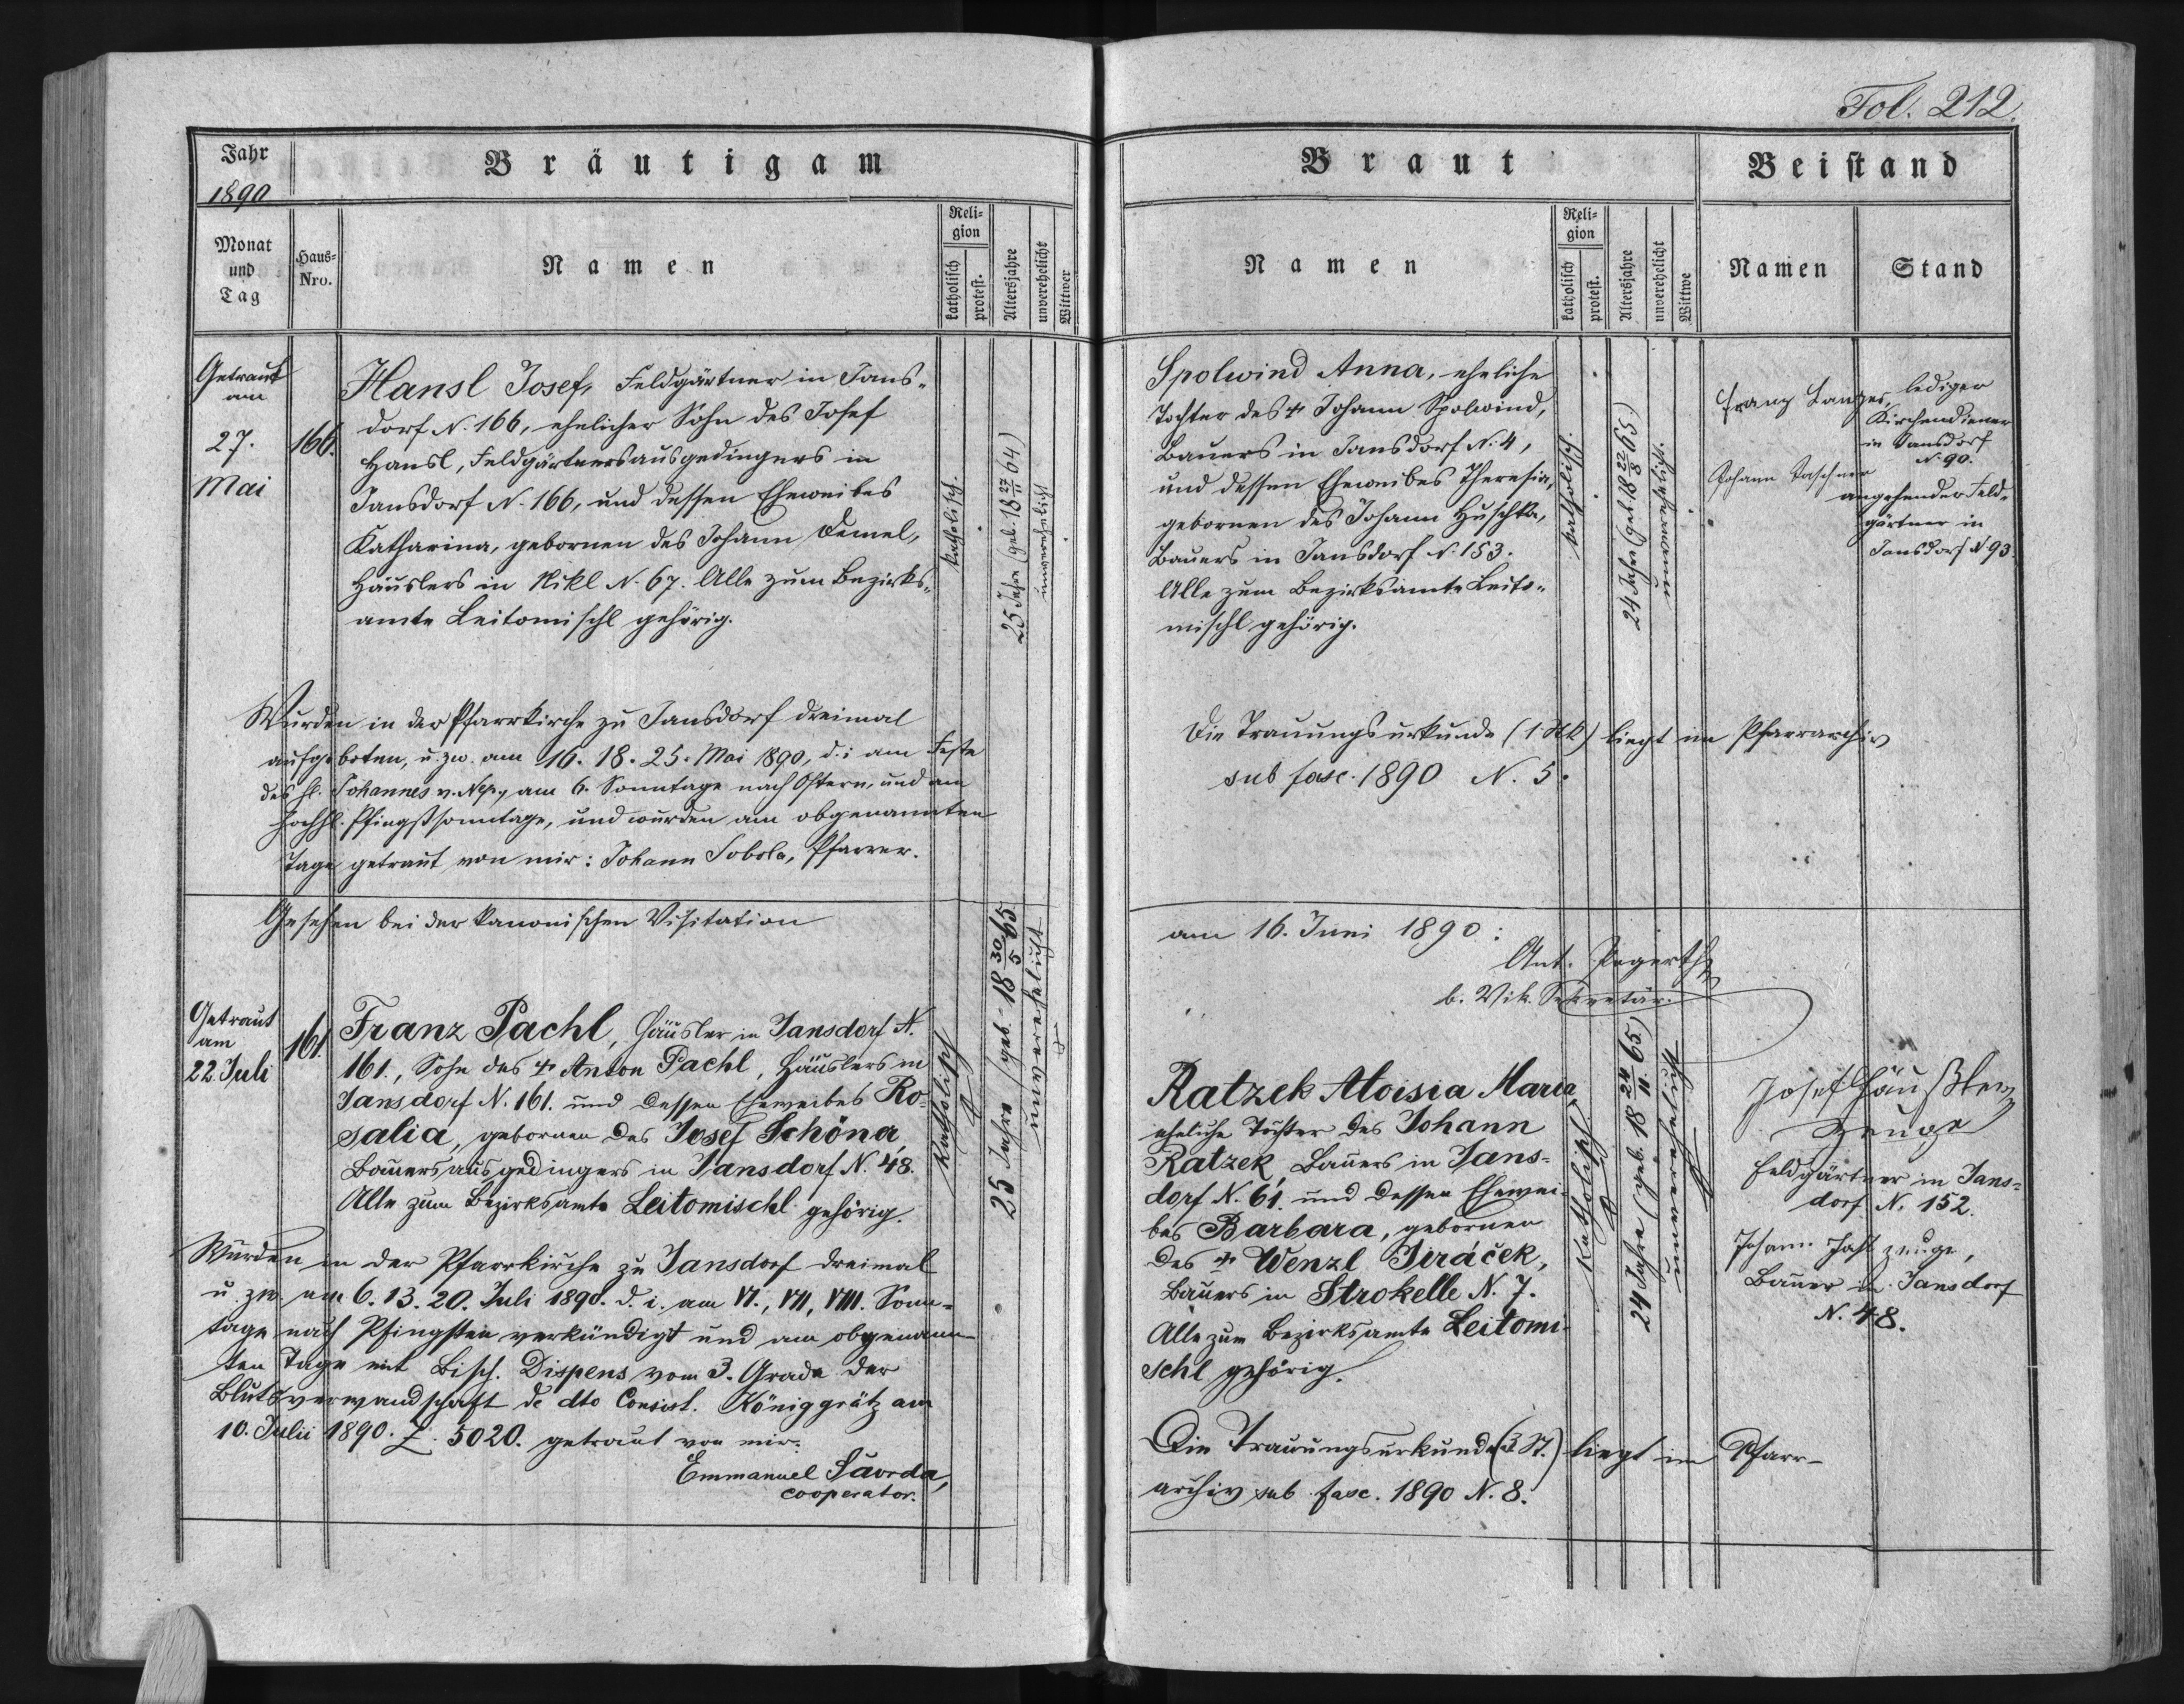 Fol. 212.
Jahr
1890
Bräutigam
Monat
und
Tag
Haus-
Nro.
Namen
Reli-
gion
katholisch
protest.
Altersjahre
unverehelicht
Wittwer
Getraut
am
27.
Mai
166.
Hansl Josef, Feldgärtner in Jans-
dorf N. 166, ehelicher Sohn des Josef
Hansl, Feldgärtnersausgedingers in
Jansdorf N. 166, und dessen Eheweibes
Katharina, gebornen des Johann Demel,
Häuslers in Nikl N. 67. Alle zum Bezirks-
amte Leitomischl gehörig.
katholisch.
25 Jahre (geb. 18 27/11 64)
unverehelicht
Wurden in der Pfarrkirche zu Jansdorf dreimal
aufgeboten, u. zw. am 16. 18. 25. Mai 1890, d. i. am Feste
des hl. Johannes v. Nep., am 6. Sonntage nach Ostern, und am
hochhl. Pfingstsonntage, und wurden am obgenannten
Tage getraut von mir: Johann Sobola, Pfarrer.
Gesehen bei der kanonischen Visitation
Getraut
am
22. Juli
161.
Franz Pachl, Häusler in Jansdorf N.
161., Sohn des † Anton Pachl, Häuslers in
Jansdorf N. 161. und dessen Eheweibes Ro-
salia, gebornen des Josef Schöna,
Bauersausgedingers in Jansdorf N. 48.
Alle zum Bezirksamte Leitomischl gehörig.
Katholisch
25 Jahre (geb. 18 30/5 65
unverehelicht
Wurden in der Pfarrkirche zu Jansdorf dreimal
u. zw. am 6. 13. 20. Juli 1890. d. i. am VI., VII, VIII. Sonn-
tage nach Pfingsten verkündigt und am obgenann-
ten Tage mit Bisch. Dispens vom 3. Grade der
Blutsverwandschaft de dto Consist. Königgrätz am
10. Julii 1890. Z. 5020. getraut von mir:
Emmanuel
cooperator.
Braut
Namen
Reli-
gion
katholisch
protest.
Altersjahre
unverehelicht
Wittwe
Beistand
Namen
Stand
Spolwind Anna, eheliche
Tochter des † Johann Spolwind,
Bauers in Jansdorf N. 4,
und dessen Eheweibes Theresia,
gebornen des Johann Huschka,
Bauers in Jansdorf N. 153.
Alle zum Bezirksamte Leito-
mischl gehörig.
katholisch.
24 Jahre (geb. 18 22/8 65)
unverehelicht.
Franz Langer, lediger
Kirchendiener
in Jansdorf
N. 90.
Johann Taschner
angehender Feld-
gärtner in
Jansdorf N 93
Die Trauungsurkunde (1 Stk) liegt im Pfarrarchiv
sub fasc. 1890 N. 5.
am 16. Juni 1890:
Ant.
b. Vik. Sekretär.
Ratzek Aloisia Maria,
eheliche Tochter des Johann
Ratzek Bauers in Jans-
dorf N. 61. und dessen Ehewei-
bes Barbara, gebornen
des † Wenzl Jeráček,
Bauers in Strokelle N. 7.
Alle zum Bezirksamte Leitomi-
schl gehörig.
Katholisch
24 Jahre (geb. 18 24/11. 65)
unverehelicht
Josef Häußler
Zeuge
Feldgärtner in Jans-
dorf N. 152.
Johann zeuge,
Bauer in Jansdorf
N. 48.
Die Trauungsurkunde (3 St.) liegt im Pfarr-
archiv sub fasc. 1890 N. 8.